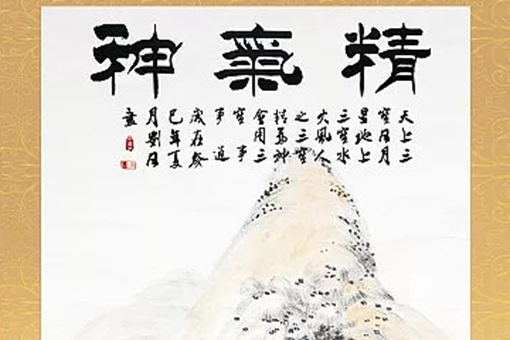 精氣神
天上三
寶日月
星地上
三寶水
火風人
之三寶
精氣神
會用三
寶事
事道
歲在癸
巳年夏
月劉